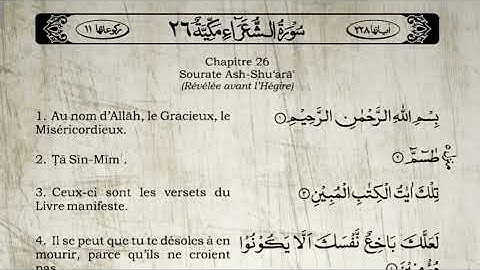 آياتها ٢٢٨ سُوْرَةُ الشُّعَرَاءِ مَكِّيَّةٌ ٢٦ ركوعاتها ١١
Chapitre 26
Sourate Ash-Shu‘arā’
(Révélée avant l’Hégire)
1. Au nom d’Allāh, le Gracieux, le
Miséricordieux.
بِسْمِ اللهِ الرَّحْمٰنِ الرَّحِيْمِ ۝١
2. Ṭā Sīn-Mīm .
طٰسٓمّٓ ۝٢
3. Ceux-ci sont les versets du
Livre manifeste.
تِلْكَ اٰيٰتُ الْكِتٰبِ الْمُبِيْنِ ۝٣
4. Il se peut que tu te désoles à en
mourir, parce qu’ils ne croient
pas.
لَعَلَّكَ بَاخِعٌ نَّفْسَكَ اَلَّا يَكُوْنُوْا
مُؤْمِنِيْنَ